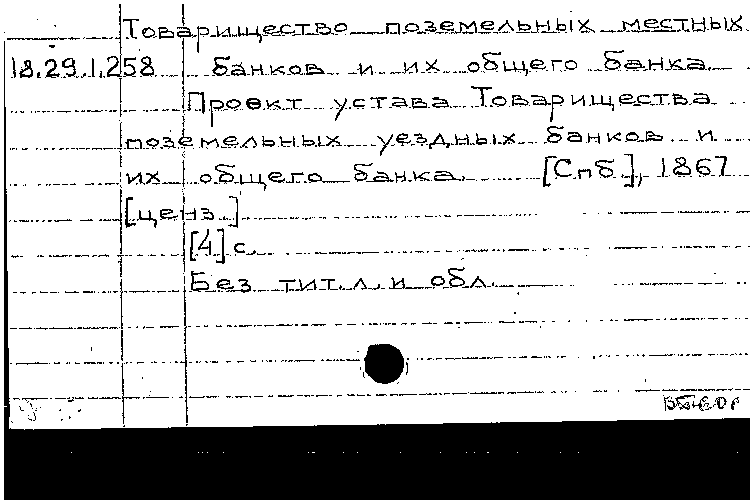 Товарищество поземельных местных
18.29.1.258 банков и их общего банка.
Проект устава Товарищества
поземельных уездных банков и
их общего банка. [Спб], 1867
[ценз.]
[4] с.
Без тит. л. и обл.